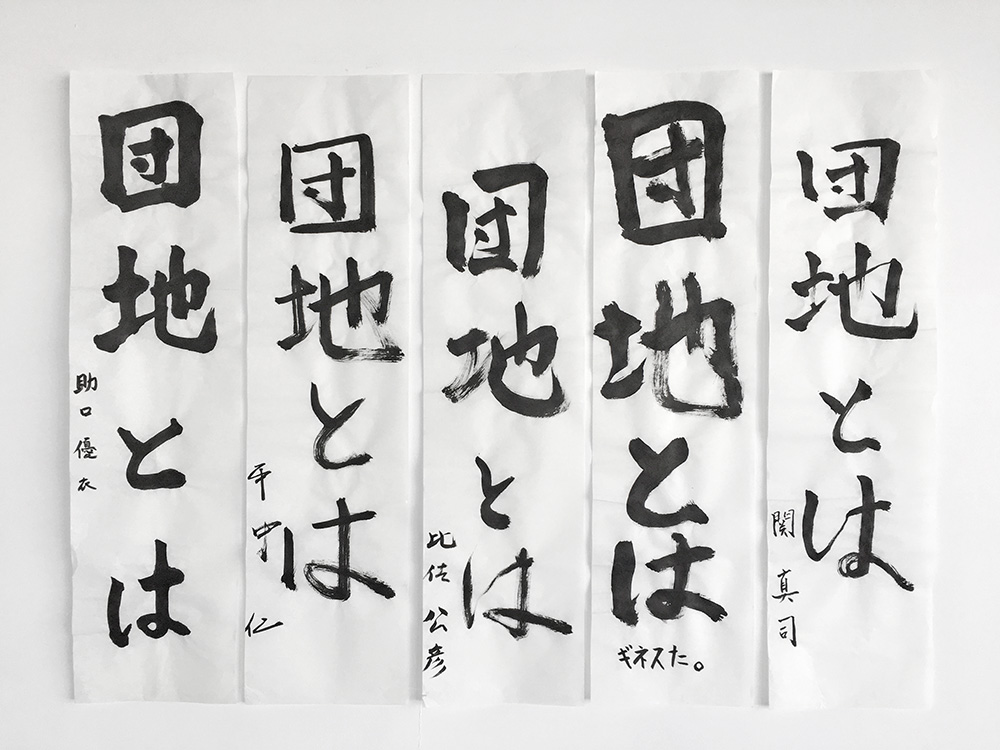 団地とは
関 真司
団地とは
ギネスた。
団地とは
比佐 公彦
団地とは
平中 仁
団地とは
助口 優衣